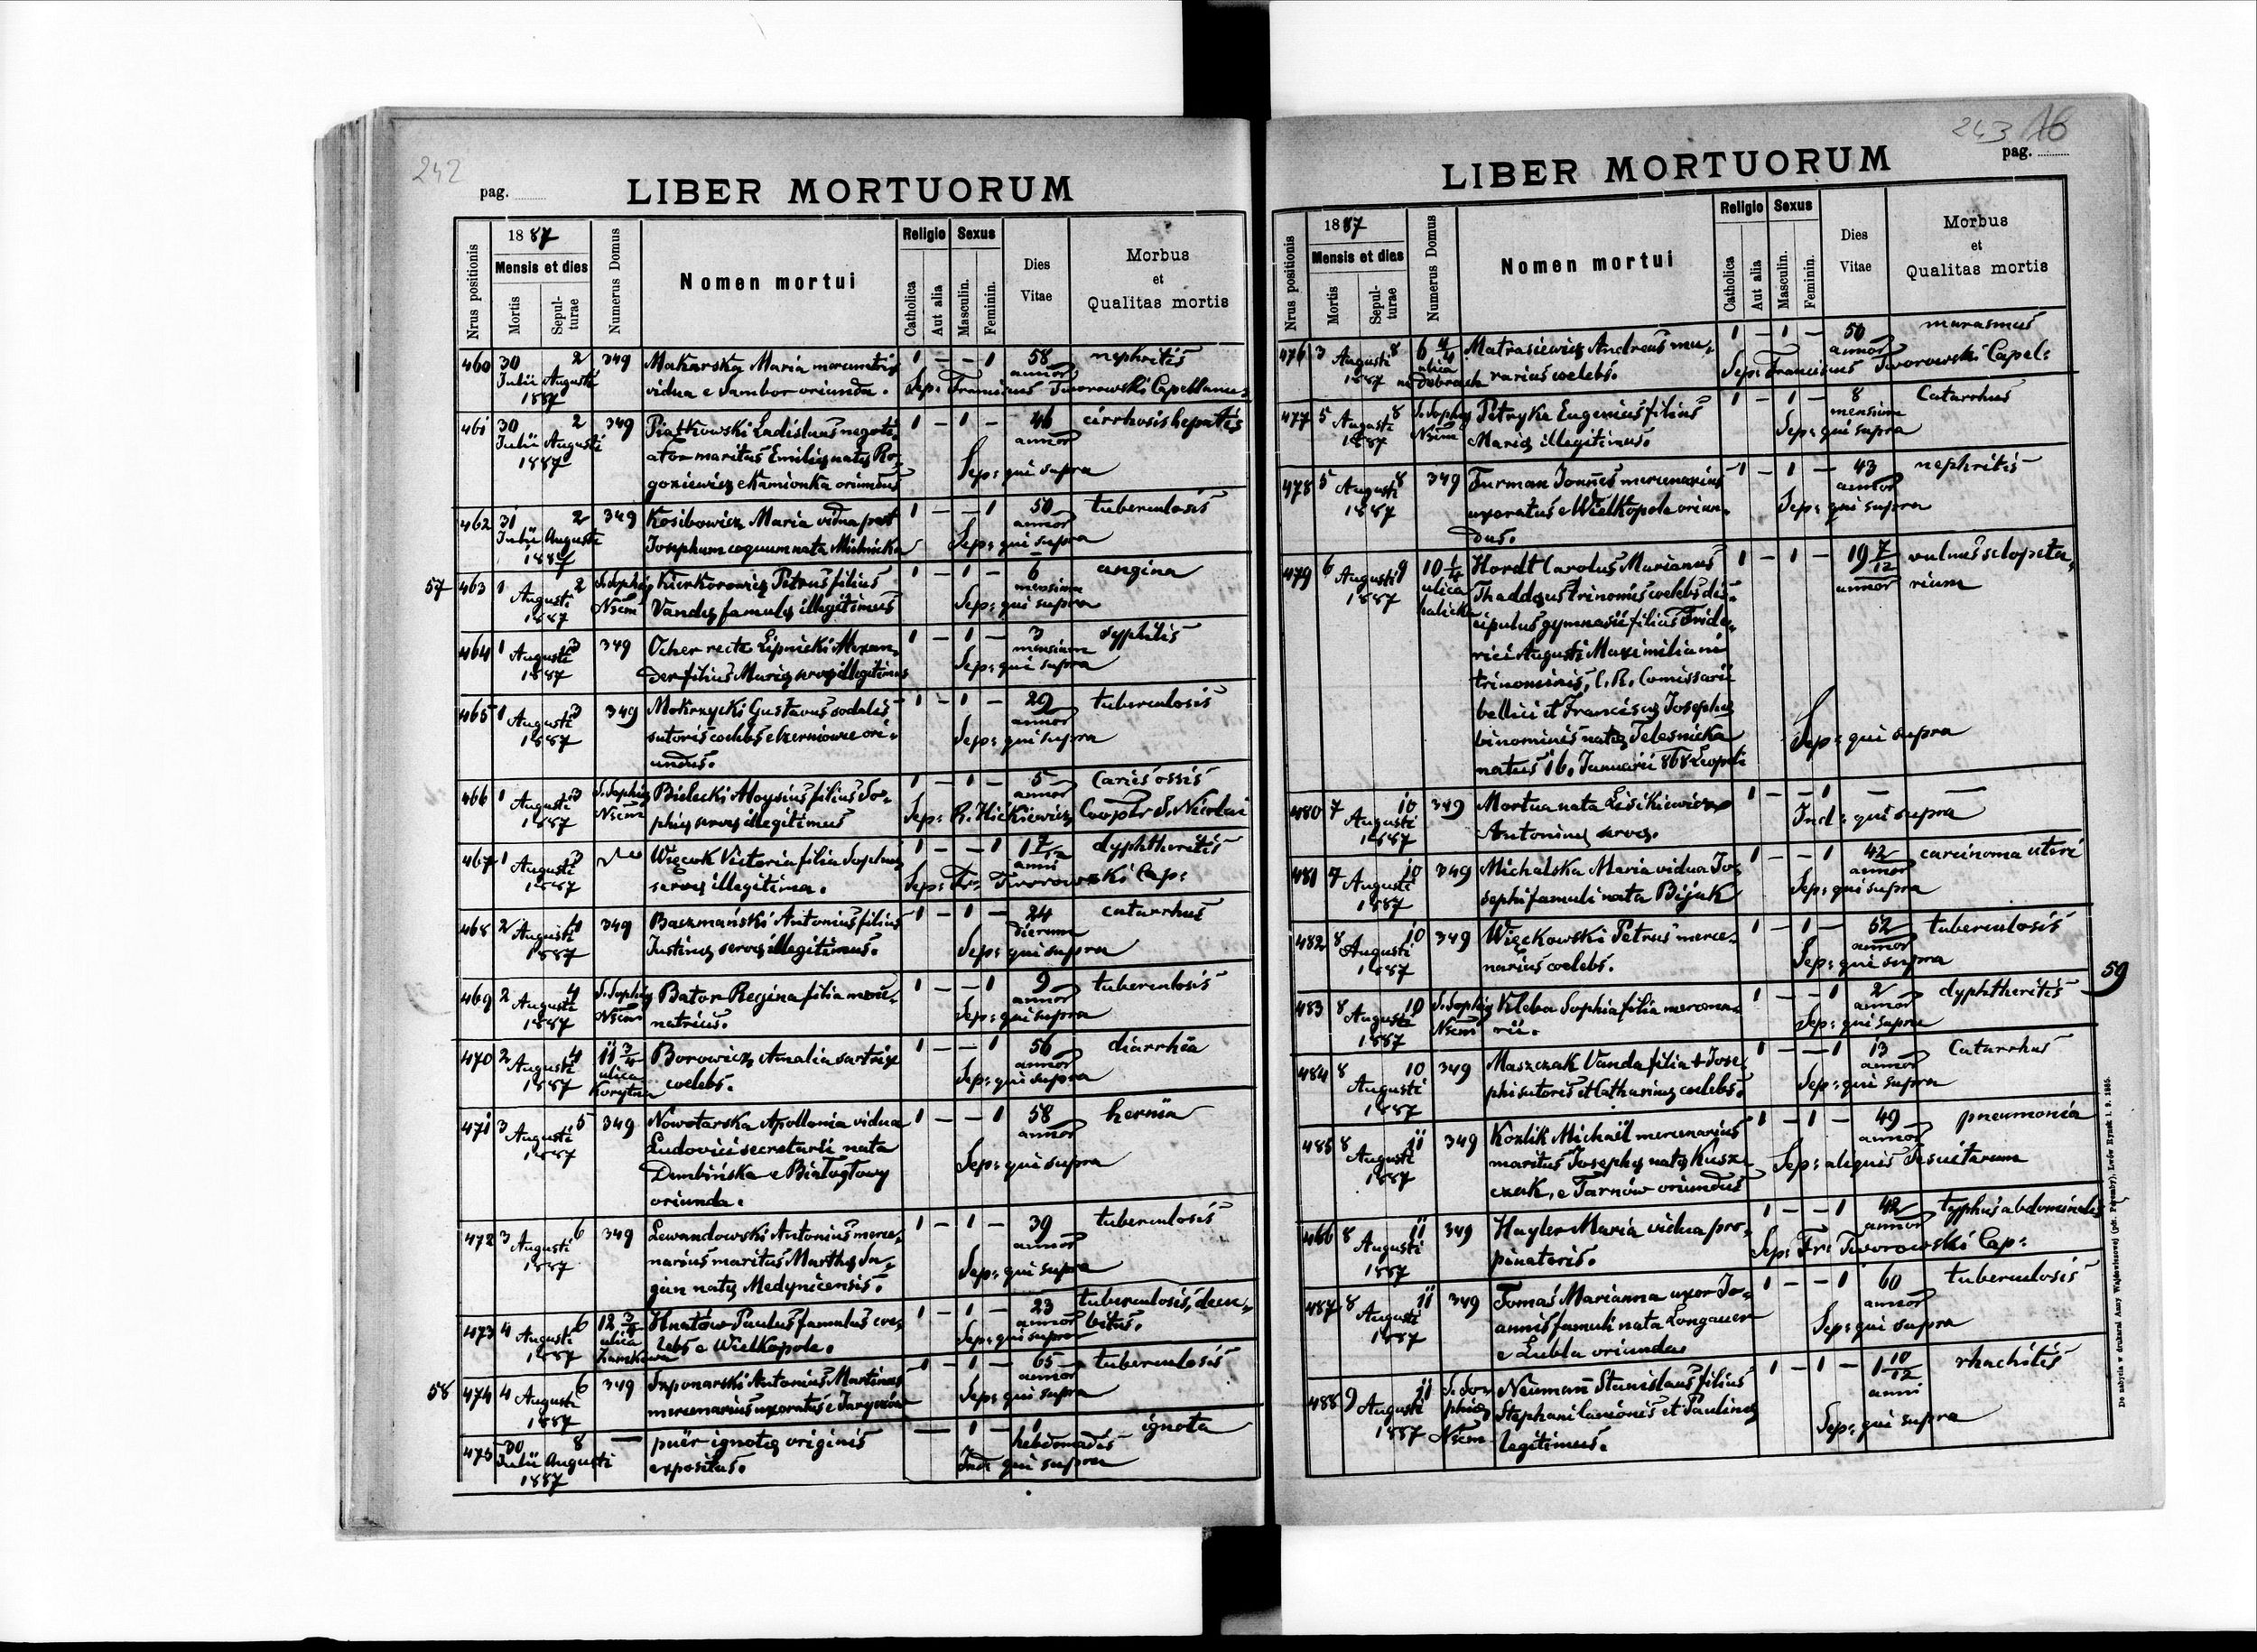 242
pag. ........
LIBER MORTUORUM
Nrus positionis
1887
Mensis et dies
Mortis
Sepulturae
Numerus Domus
Nomen mortui
Religio
Catholica
Aut alia
Sexus
Masculin.
Feminin.
Dies Vitae
Morbus et Qualitas mortis
460 30 2 349 Makarska Maria 1 – – 1 58 nephritis
Julii Augusti vidua e Sambor oriunda. annor
1887 Sep: Franciscus Tworowski Capellanus
461 30 2 349 Piątkowski Ladislaus negoti- 1 – 1 – 46 cirrhosis hepatis
Julii Augusti ator maritus Emilię natę Ro- annor
1887 goziewicz e Kamionka oriundus Sep: qui supra
462 31 2 349 Kosibowicz Maria vidua post 1 – – 1 50 tuberculosis
Julii Augusti Josephum coquum nata annor
1887 Sep: qui supra
57 463 1 2 S. Sophię Kierkorowicz Petrus filius 1 – 1 – 6 angina
Augusti Nsem Vandę famulę illegitimus mensium
1887 Sep: qui supra
464 1 3 349 Ocher recte Lipnicki Alexan- 1 – 1 – 3 syphilis
Augusti der filius Marię servę illegitimus mensium
1887 Sep: qui supra
465 1 3 349 Mokrzycki Gustavus sodalis 1 – 1 – 29 tuberculosis
Augusti sutoris coelebs e Czerniowce ori- annor
1887 undus. Sep: qui supra
466 1 3 S. Sophię Bielecki Aloysius filius So- 1 – 1 – 5 Caries ossis
Augusti Nsem phię servę illegitimus annor
1887 Sep: R. Hickiewicz Cooptr S. Nicolai
467 1 3 Więcek Victoria filia Sophię 1 – – 1 1 7/12 dyphtheritis
Augusti servę illegitima. anni
1887 Sep: Fr: Tworowski Cap:
468 2 4 349 Baczmański Antonius filius 1 – 1 – 24 catarrhus
Augusti Justinę servę illegitimus. dierum
1887 Sep: qui supra
469 2 4 S. Sophię Bator Regina filia merce- 1 – – 1 9 tuberculosis
Augusti Nsem natricis. annor
1887 Sep: qui supra
470 2 4 11 3/4 Borowicz Amalia sartrix 1 – – 1 56 diarrhia
Augusti ulica coelebs. annor
1887 Korytna Sep: qui supra
471 3 5 349 Nowotarska Apollonia vidua 1 – – 1 58 hernia
Augusti Ludovici secretarii nata annor
1887 Dembińska e Białogłowy Sep: qui supra
oriunda.
472 3 6 349 Lewandowski Antonius merce- 1 – 1 – 39 tuberculosis
Augusti narius maritus Marthę annor
1887 natę Medynicensis. Sep: qui supra
473 4 6 12 3/4 Hnatów Paulus famulus coe- 1 – 1 – 23 tuberculosis, decu-
Augusti ulica lebs e Wielkopole. annor bitus.
1887 Zamkowa Sep: qui supra
58 474 4 6 349 Saponarski Antonius Martinus 1 – 1 – 65 tuberculosis
Augusti mercenarius uxoratus e annor
1887 Sep: qui supra
475 30 8 — puer ignotę originis — 1 – 1 ignota
Julii Augusti expositus. hebdomadis
1887 Ind: qui supra
243 16
pag. ........
LIBER MORTUORUM
Nrus positionis
1887
Mensis et dies
Mortis
Sepulturae
Numerus Domus
Nomen mortui
Religio
Catholica
Aut alia
Sexus
Masculin.
Feminin.
Dies Vitae
Morbus et Qualitas mortis
476 3 8 6 4/4 Matrasiewicz Andreas mu- 1 – 1 – 50 marasmus
Augusti ulica rarius coelebs. annor
1887 Sep: Franciscus Tworowski Capel:
477 5 8 S. Sophię Petryka Eugenius filius 1 – 1 – 8 Catarrhus
Augusti Nsem Marię illegitimus. mensium
1887 Sep: qui supra
478 5 8 349 Furman Joannes mercenarius 1 – 1 – 43 nephritis
Augusti uxoratus e Wielkopole oriun- annor
1887 dus. Sep: qui supra
479 6 9 10 1/4 Hordt Carolus Marianus 1 – 1 – 19 7/12 vulnus sclopeta-
Augusti ulica Thaddęus trinomis coelebs dis- annor rium
1887 halicka cipulus gymnasii filius Fride-
rici Augusti Maximiliani
trinominis, C. R. Comissarii
bellici et Franciscę Josephę
binominis natę Telesnicka Sep: qui supra
natus 16. Januarii 868 Leopoli
480 7 10 349 Mortua nata Lisikiewicz 1 – – 1 — —
Augusti Antoninę servę. Ind: qui supra
1887
481 7 10 349 Michalska Maria vidua Jo- 1 – – 1 42 carcinoma uteri
Augusti sephi famuli nata Bijak annor
1887 Sep: qui supra
482 8 10 349 Więckowski Petrus merce- 1 – 1 – 52 tuberculosis
Augusti narius coelebs. annor
1887 Sep: qui supra
59
483 8 10 S. Sophię Kleba Sophia filia mercena- 1 – – 1 2 dyphtheritis
Augusti Nsem rii. annor
1887 Sep: qui supra
484 8 10 349 Maszczak Vanda filia + Jose- 1 – – 1 13 Catarrhus
Augusti phi sutoris et Catharinę coelebs. annor
1887 Sep: qui supra
485 8 11 349 Kozlik Michaël mercenarius 1 – 1 – 49 pneumonia
Augusti maritus Josephę natę Kusz- annor
1887 czak, e Tarnów oriundus Sep: aliquis Jesuitarum
486 8 11 349 Hayler Maria vidua pro- 1 – – 1 42 typhus abdominalis
Augusti pinatoris. annor
1887 Sep: Fr: Tworowski Cap:
487 8 11 349 Tomaś Marianna uxor Jo- 1 – – 1 60 tuberculosis
Augusti annis famuli nata Longauer annor
1887 e Lubla oriunda Sep: qui supra
488 9 11 S. So- Neumann Stanislaus filius 1 – 1 – 1 10/12 rhachitis
Augusti phię Stephani lanionis et Paulinę anni
1887 Nsem legitimus. Sep: qui supra
De nabycia w drukarni Anny Wajdowiczowej (pdt. Poremby), Lwów Rynek l. 9. 1885.